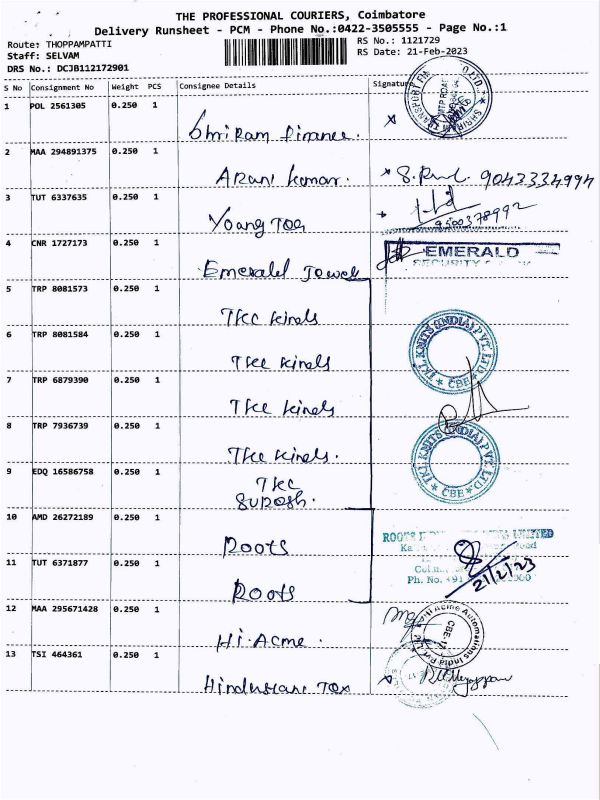 THE PROFESSIONAL COURIERS, Coimbatore
Delivery Runsheet - PCM - Phone No.:0422-3505555 - Page No.:1
Route: THOPPAMPATTI
Staff: SELVAM
DRS No.: DCJB112172901
RS No.: 1121729
RS Date: 21-Feb-2023
S No Consignment No Weight PCS Consignee Details Signature
1 POL 2561305 0.250 1
Shriram Finance.
2 MAA 294891375 0.250 1
Arani Kumar. 9043334994
3 TUT 6337635 0.250 1
Young Tog 9500378992
4 CNR 1727173 0.250 1
Emerald Jewel EMERALD
SECURITY
5 TRP 8081573 0.250 1
TKL KNITS (INDIA) PVT. LTD
CBE
6 TRP 8081584 0.250 1
7 TRP 6879390 0.250 1
8 TRP 7936739 0.250 1
TKL KNITS (INDIA) PVT. LTD
CBE
9 EDQ 16586758 0.250 1
10 AMD 26272189 0.250 1
Roots
ROOTS INDIA LIMITED
11 TUT 6371877 0.250 1
Roots
Ph. No.
21/2/23
12 MAA 295671428 0.250 1
Hi-Acme.
Hi Acme Automations India Pvt Ltd
CBE-17
13 TSI 464361 0.250 1
Hindustan Tex